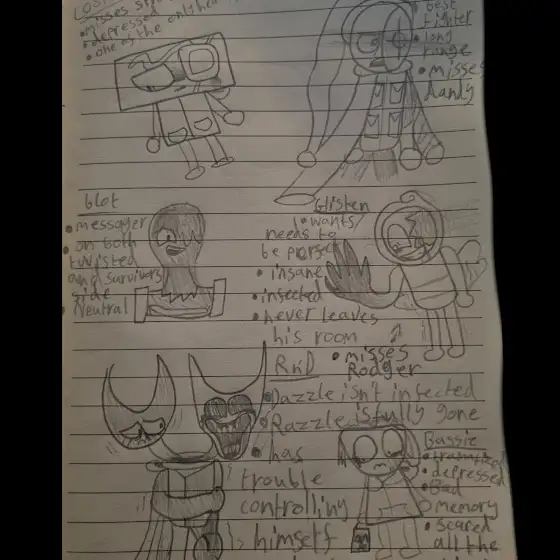 • misses
• depressed
• one of the only
best
fighter
• long
range
• misses
dandy
blot
• messager
on both
twisted
and survivors
side
• Neutral
Glisten
• wants/
needs to
be perfect
• insane
• infected
• never leaves
his room
• misses
Rodger
RnD
• Dazzle isn't infected
• Razzle is fully gone
• has
trouble
controlling
himself
Bassie
• tramatized
• depressed
• Bad
memory
• scared
all the